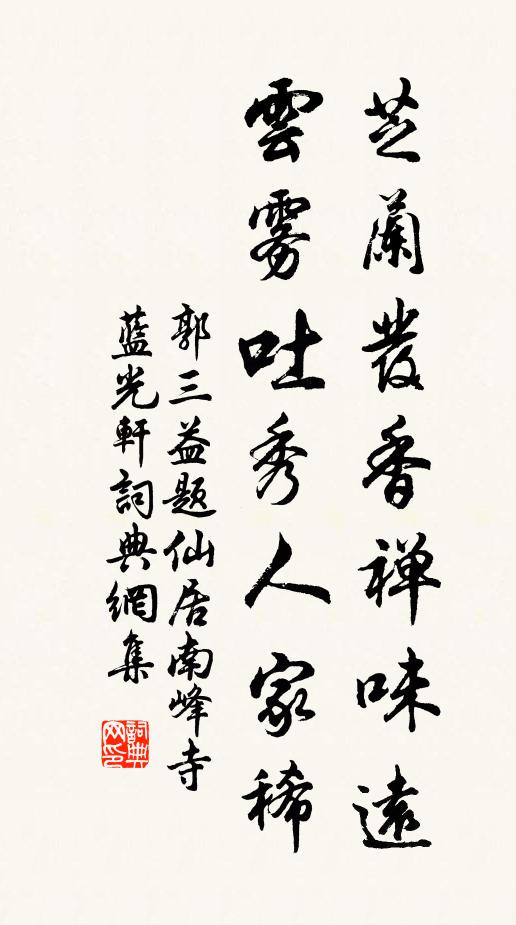 芝蘭發香禅味遠
雲雾吐秀人家稀
郭三益题仙居南峰寺
藍光軒詞典網集
詞典
网印